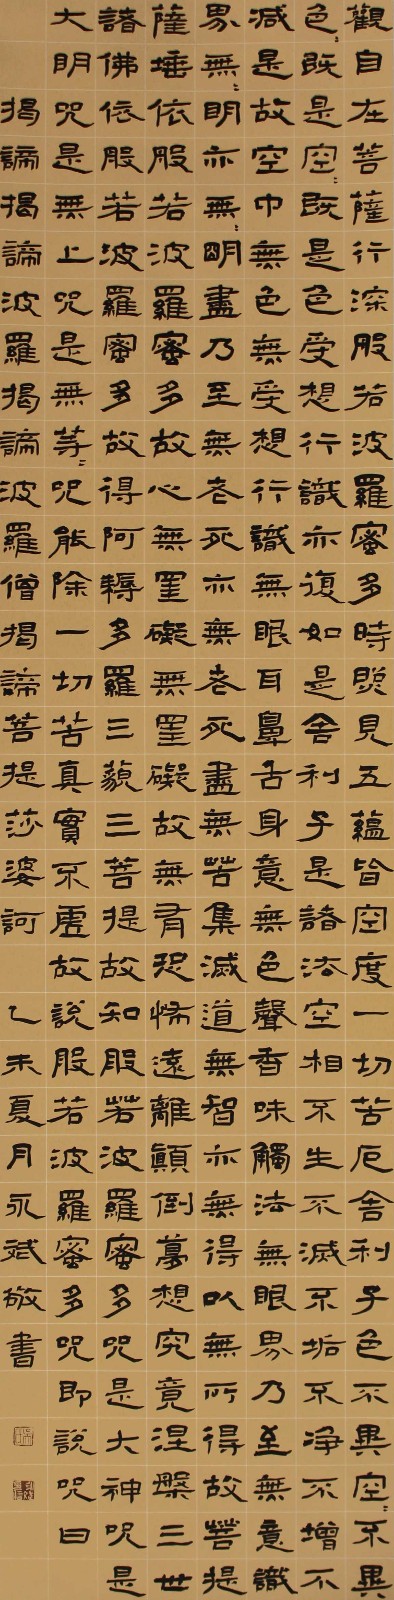 觀自在菩薩行深般若波羅蜜多時照見五蘊皆空度一切苦厄舍利子色不異空〻不異
色〻既是空〻既是色受想行識亦復如是舍利子是諸法空相不生不滅不垢不净不增不
減是故空中無色無受想行識無眼耳鼻舌身意無色聲香味觸法無眼界乃至無意識
界無〻明亦無〻明盡乃至無老死亦無老死盡無苦集滅道無智亦無得以無所得故菩提
薩埵依般若波羅蜜多故心無罣礙無罣礙故無有恐怖遠離顛倒夢想究竟涅槃三世
諸佛依般若波羅蜜多故得阿耨多羅三藐三菩提故知般若波羅蜜多咒是大神咒是
大明咒是無上咒是無等〻咒能除一切苦真實不虛故說般若波羅蜜多咒即說咒曰
揭諦揭諦波羅揭諦波羅僧揭諦菩提莎婆訶 乙未夏月永斌敬書